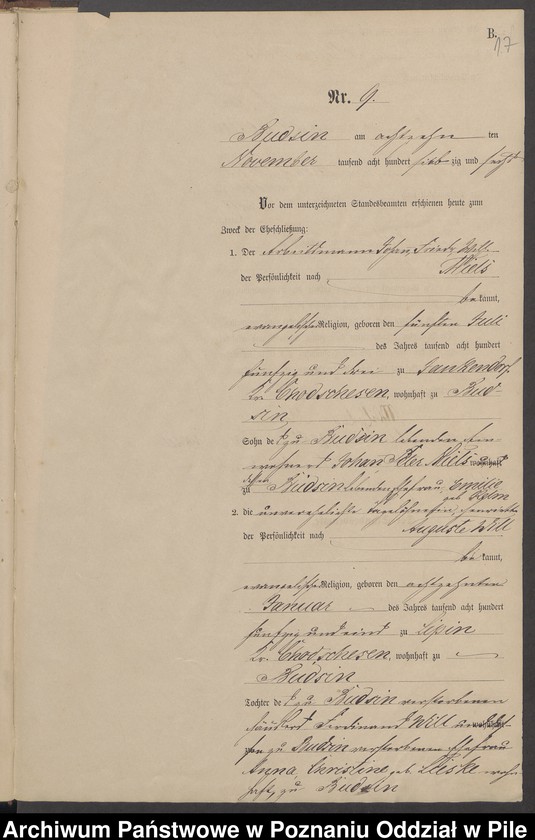 B.
17
Nr. 9.
Budsin am achtzehn ten
November tausend acht hundert sieb zig und sechs
Vor dem unterzeichneten Standesbeamten erschienen heute zum
Zweck der Eheschließung:
1. Der Arbeitsmann Johann Friedr. Will.
Miels
der Persönlichkeit nach
be kannt,
evangelischer Religion, geboren den fünften Juli
des Jahres tausend acht hundert
fünfzig und drei zu Jankendorf
Kr. Chodschesen, wohnhaft zu Bud-
sin
Sohn des zu Budsin lebenden Ein-
wohners Johan Miels wohnhaft
zu Budsin lebenden Ehefrau Emilie
geb. Helm
2. die unverehelichte Tagelöhnerin, Henriette
Auguste Will
der Persönlichkeit nach
be kannt,
evangelischer Religion, geboren den achtzehnten
Januar des Jahres tausend acht hundert
fünfzig und eins zu Lipin
Kr. Chodschesen, wohnhaft zu
Budsin
Tochter des zu Budsin verstorbenen
Ferdinand Will und wohnhaft
zu Budsin verstorbenen Ehefrau
Anna Christine, geb. Lieske wohn-
haft zu Budsin
Archiwum Państwowe w Poznaniu Oddział w Pile